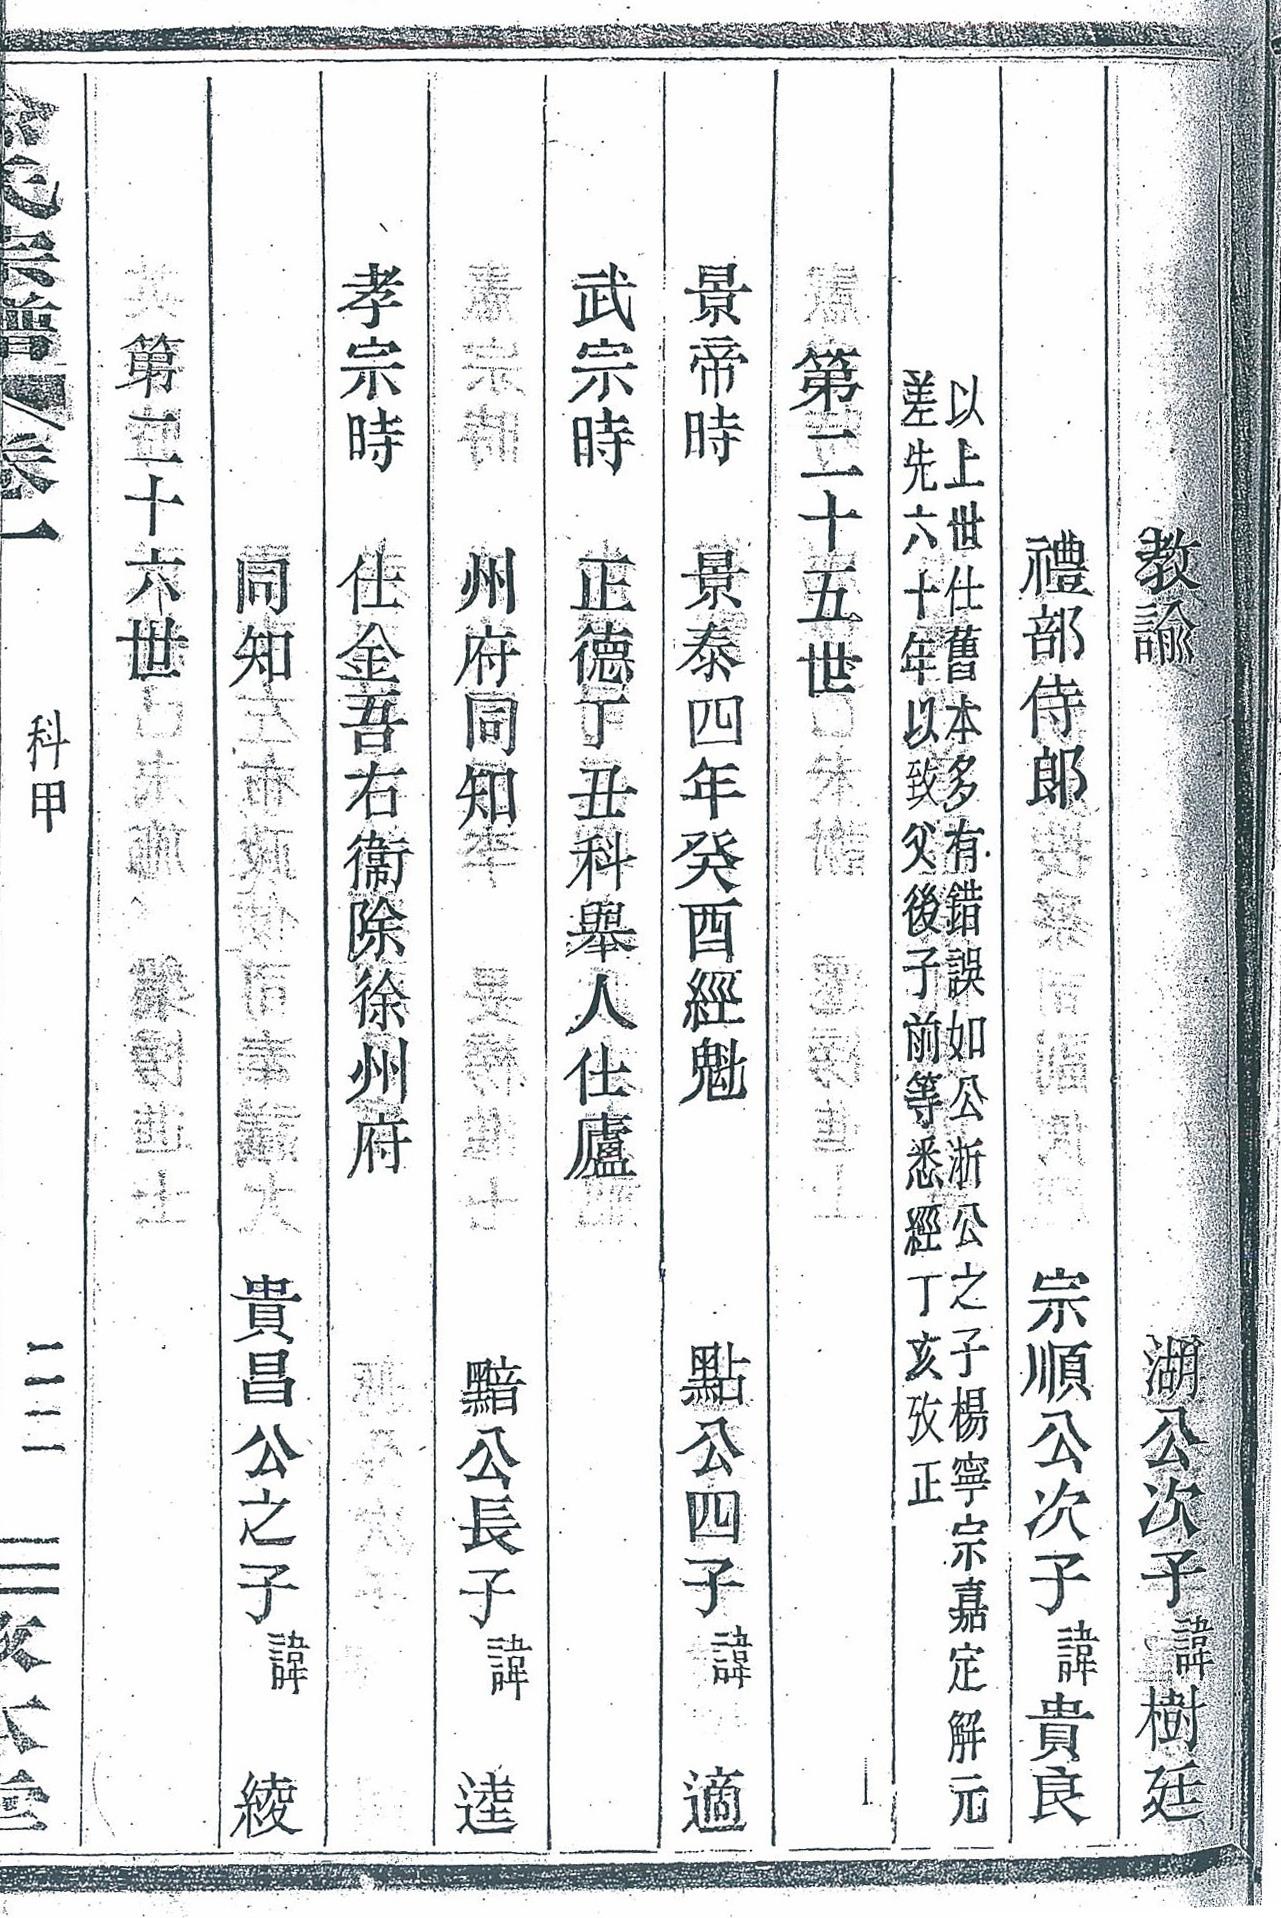 教諭 湖公次子諱樹廷
禮部侍郎 宗順公次子諱貴良
以上世仕舊本多有錯誤如公浙公之子楊寧宗嘉定解元
差先六十年以致父後子前等悉經丁亥攷正
第二十五世
景帝時 景泰四年癸酉經魁 點公四子諱 適
武宗時 正德丁丑科舉人仕廬
州府同知 黯公長子諱 逵
孝宗時 仕金吾右衞除徐州府
同知 貴昌公之子諱 綾
第二十六世
氏宗譜 卷一 科甲 二二